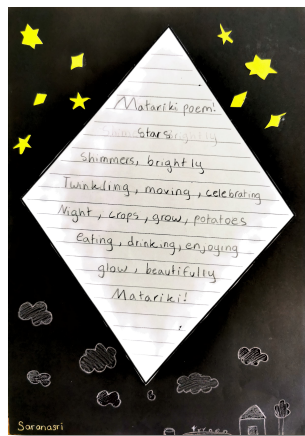 Matariki poem!
Stars
Shimmers, brightly
Twinkling, moving, celebrating
Night, crops, grow, potatoes
eating, drinking, enjoying
glow, beautifully
Matariki!
Saranasri